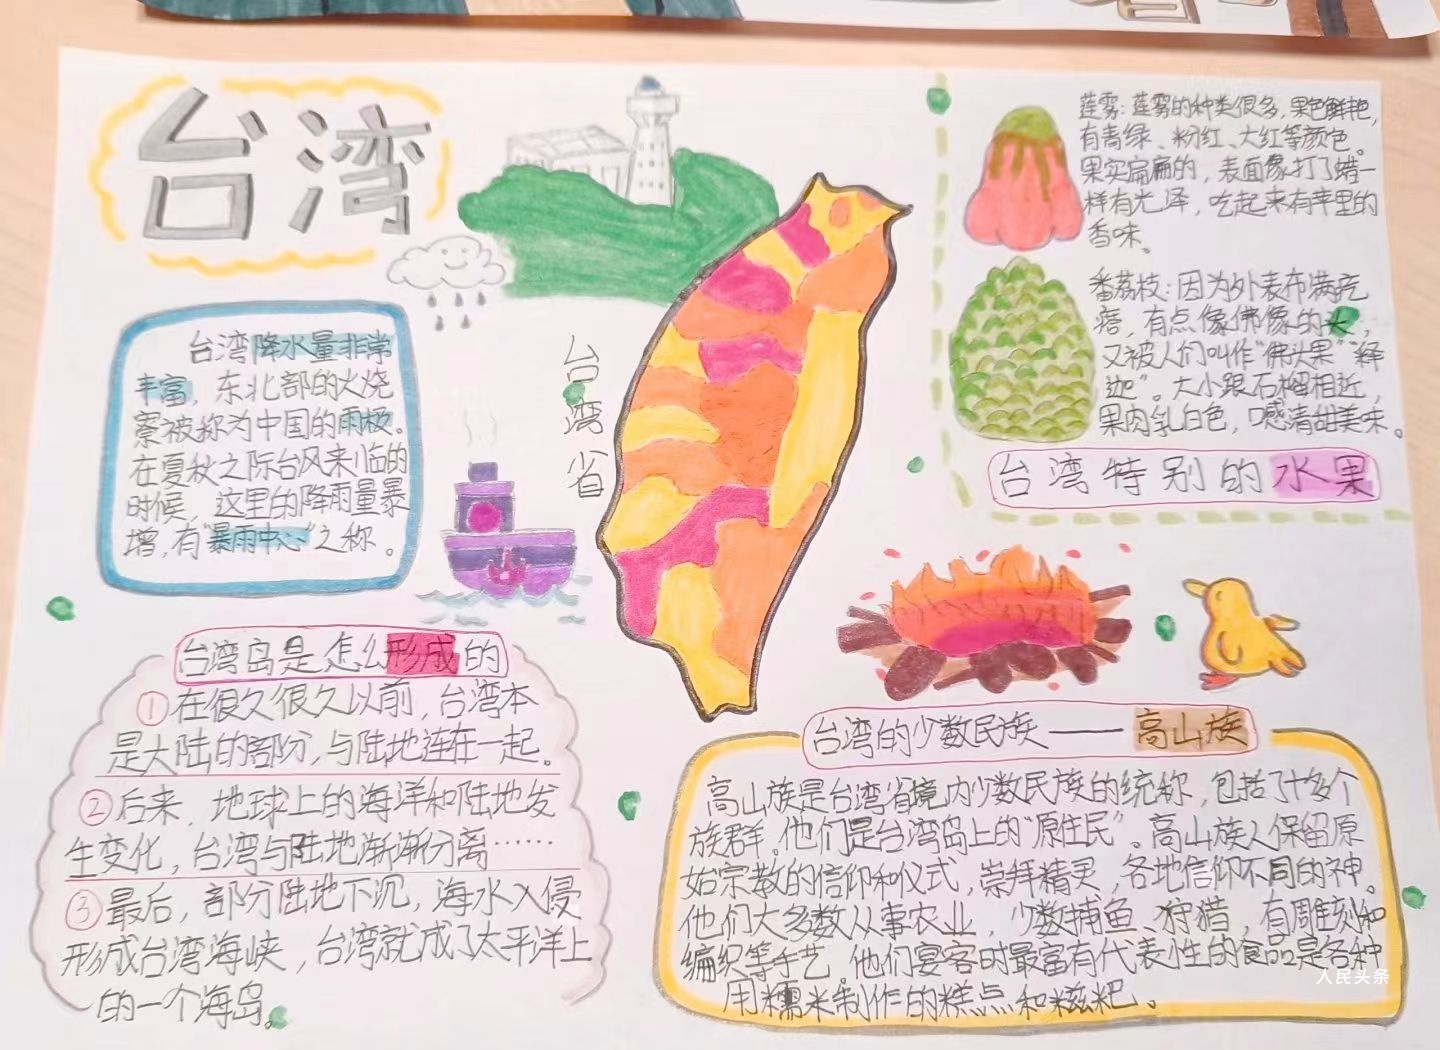 台湾
台湾降水量非常
丰富，东北部的火烧
寮被称为中国的雨极。
在夏秋之际台风来临的
时候，这里的降雨量暴
增，有“暴雨中心”之称。
台湾省
莲雾：莲雾的种类很多，果色鲜艳，
有青绿、粉红、大红等颜色。
果实扁扁的，表面像打了蜡一
样有光泽，吃起来有苹里的
香味。
番荔枝：因为外表布满疙
瘩，有点像佛像的头，
又被人们叫作“佛头果”“释
迦”。大小跟石榴相近，
果肉乳白色，口感清甜美味。
台湾特别的水果
台湾岛是怎么形成的
①在很久很久以前，台湾本
是大陆的部份，与陆地连在一起。
②后来，地球上的海洋和陆地发
生变化，台湾与陆地渐渐分离……
③最后，部分陆地下沉，海水入侵
形成台湾海峡，台湾就成了太平洋上
的一个海岛。
台湾的少数民族——高山族
高山族是台湾省境内少数民族的统称，包括了十多个
族群。他们是台湾岛上的“原住民”。高山族人保留原
始宗教的信仰和仪式，崇拜精灵，各地信仰不同的神。
他们大多数从事农业，少数捕鱼、狩猎，有雕刻和
编织等手艺。他们宴客时最富有代表性的食品是各种
用糯米制作的糕点和糍粑。
人民头条